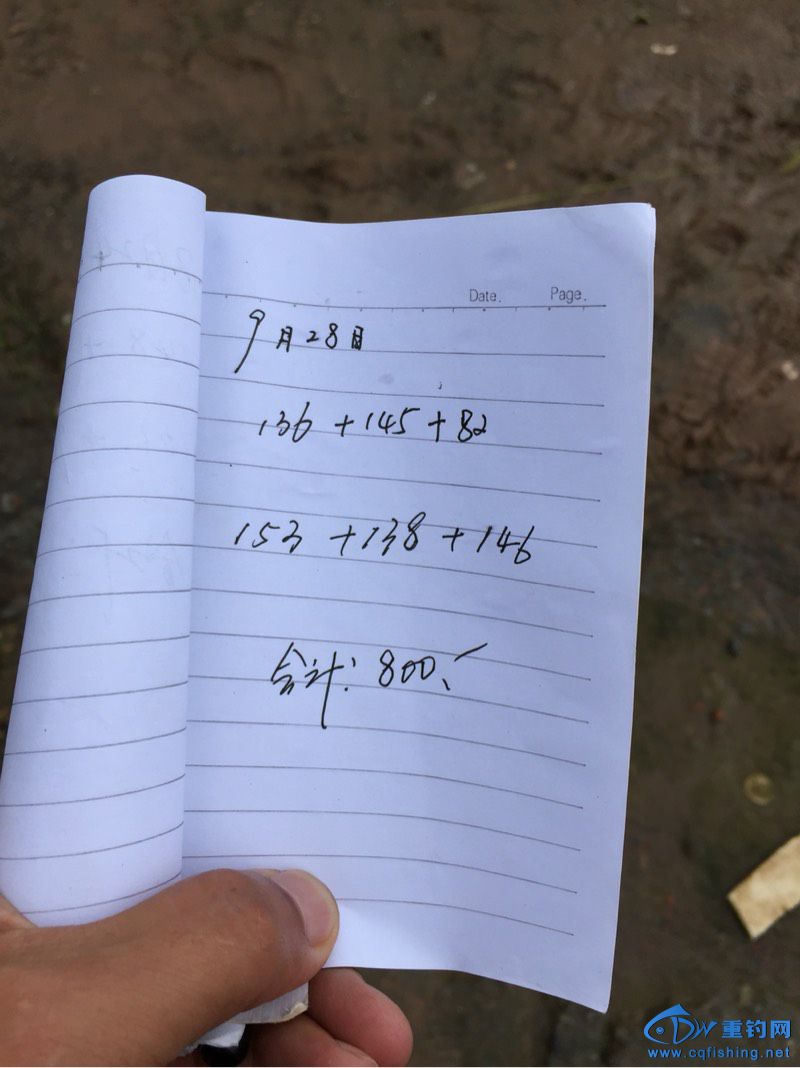 Date. Page.
9月28日
136+145+82
153+138+146
合计:800.
重钓网
www.cqfishing.net